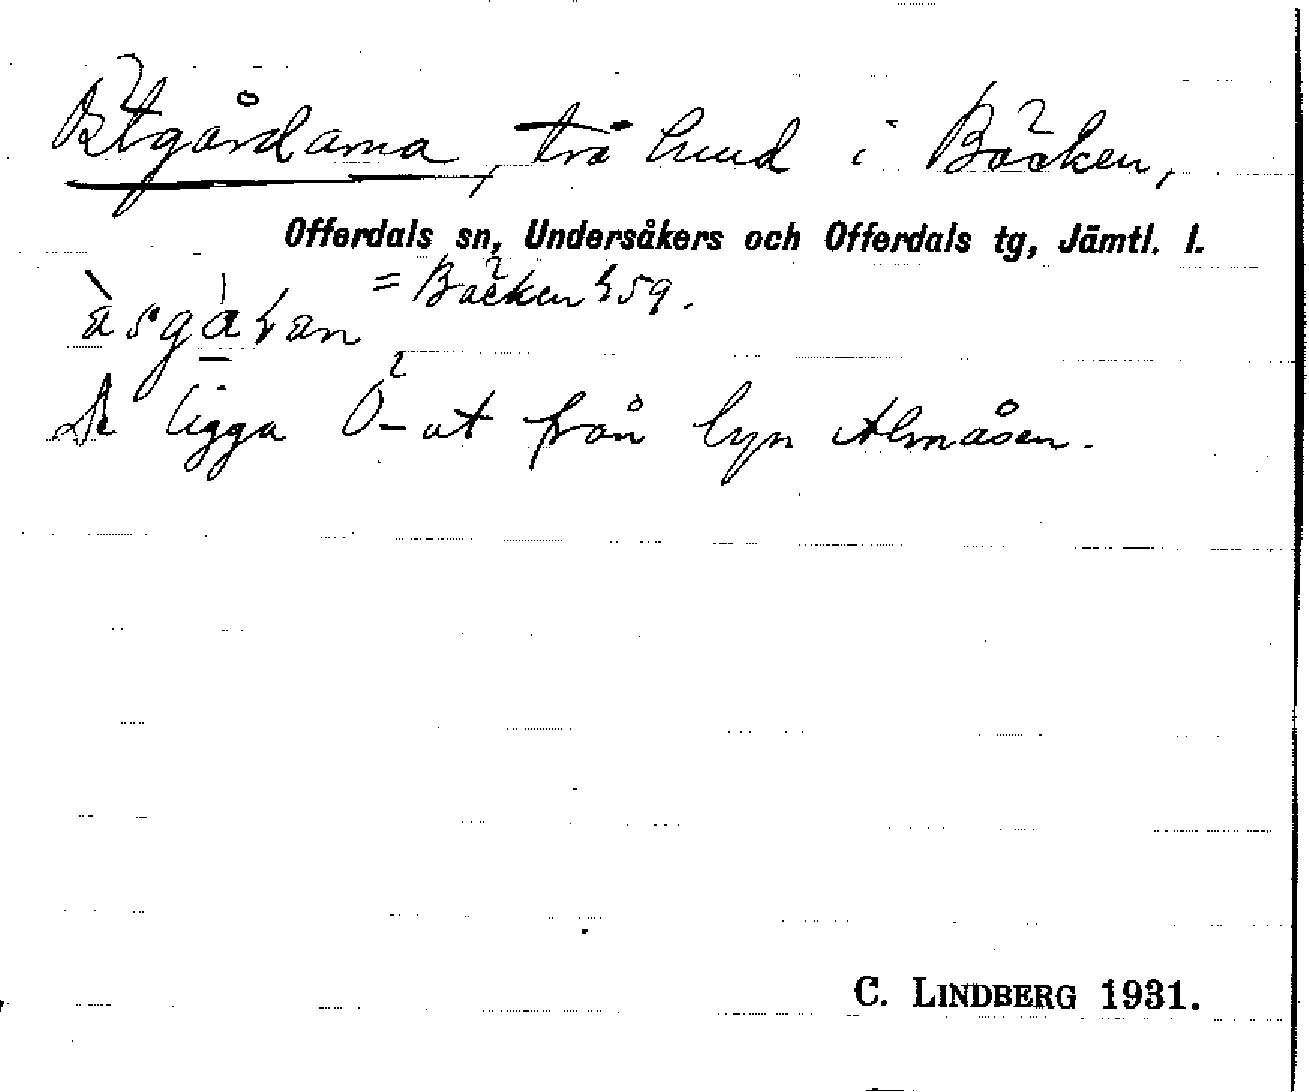 Östgårdarna, två hmd i Bäcken,
Offerdals sn, Undersåkers och Offerdals tg, Jämtl. l.
= Bäcken 459.
De ligga Ö-ut från byn Almåsen.
C. LINDBERG 1931.